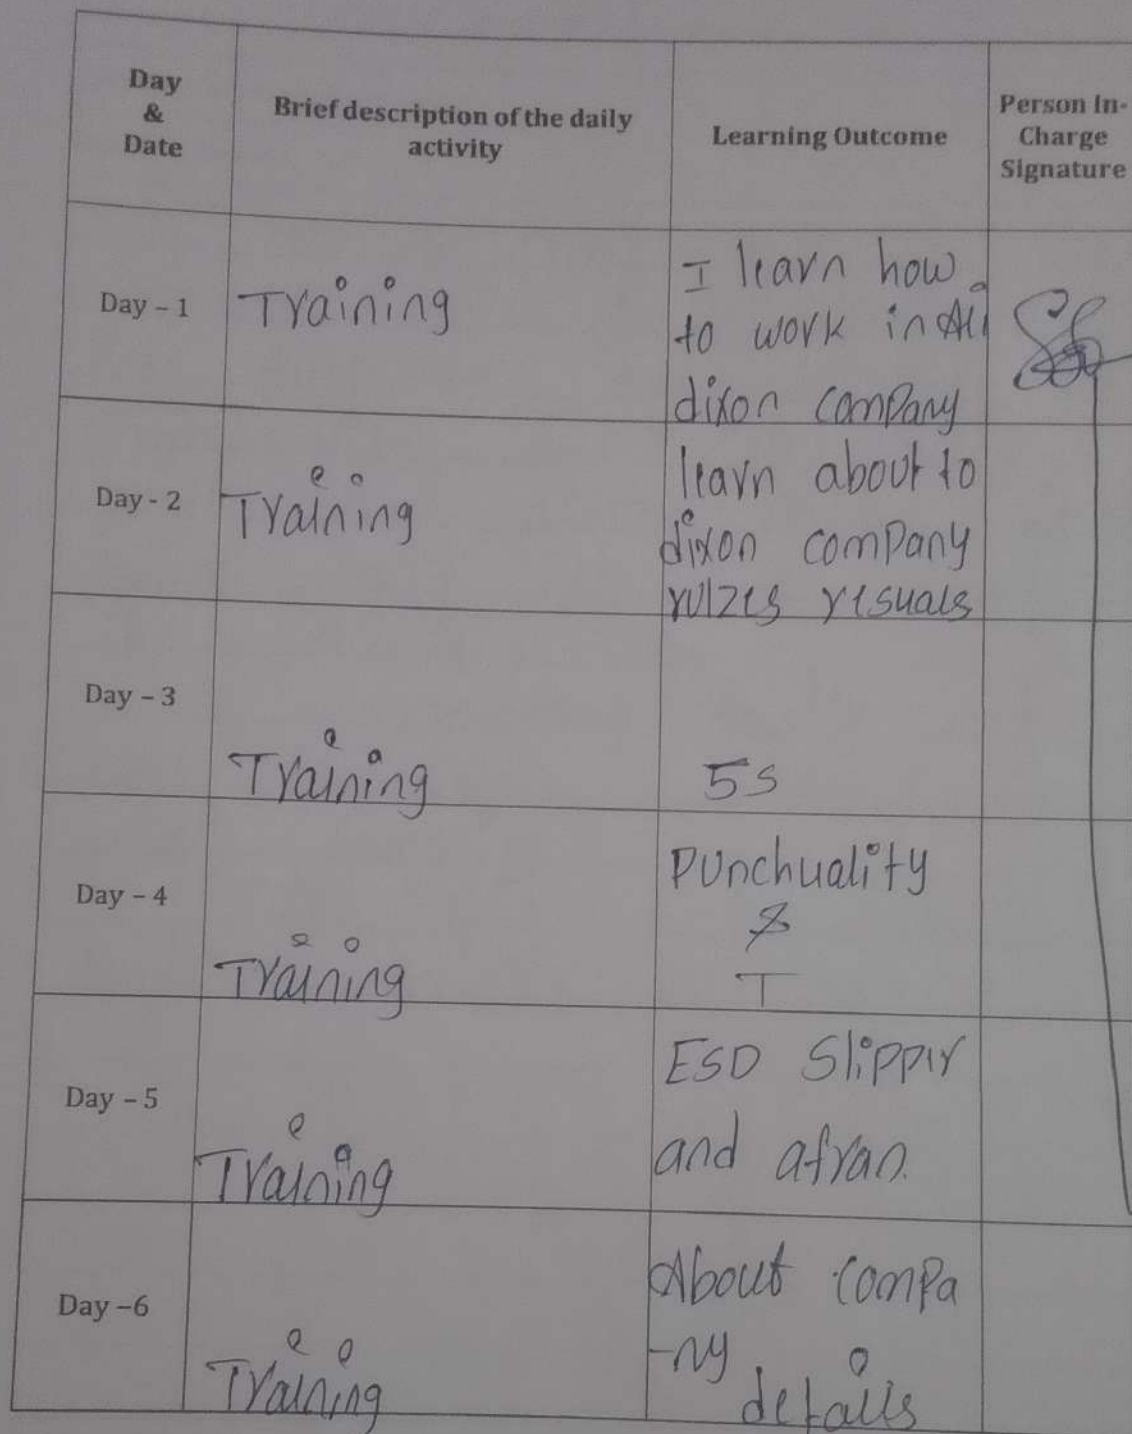 Day
&
Date
Brief description of the daily
activity
Learning Outcome
Person In-
Charge
Signature
Day – 1
Training
I learn how
to work in
dixon company
Day - 2
Training
learn about to
dixon company
Day – 3
Training
5s
Day – 4
Training
Punchuality
&
T
Day – 5
Training
ESD Slipper
and afran.
Day –6
Training
About compa
-ny
details